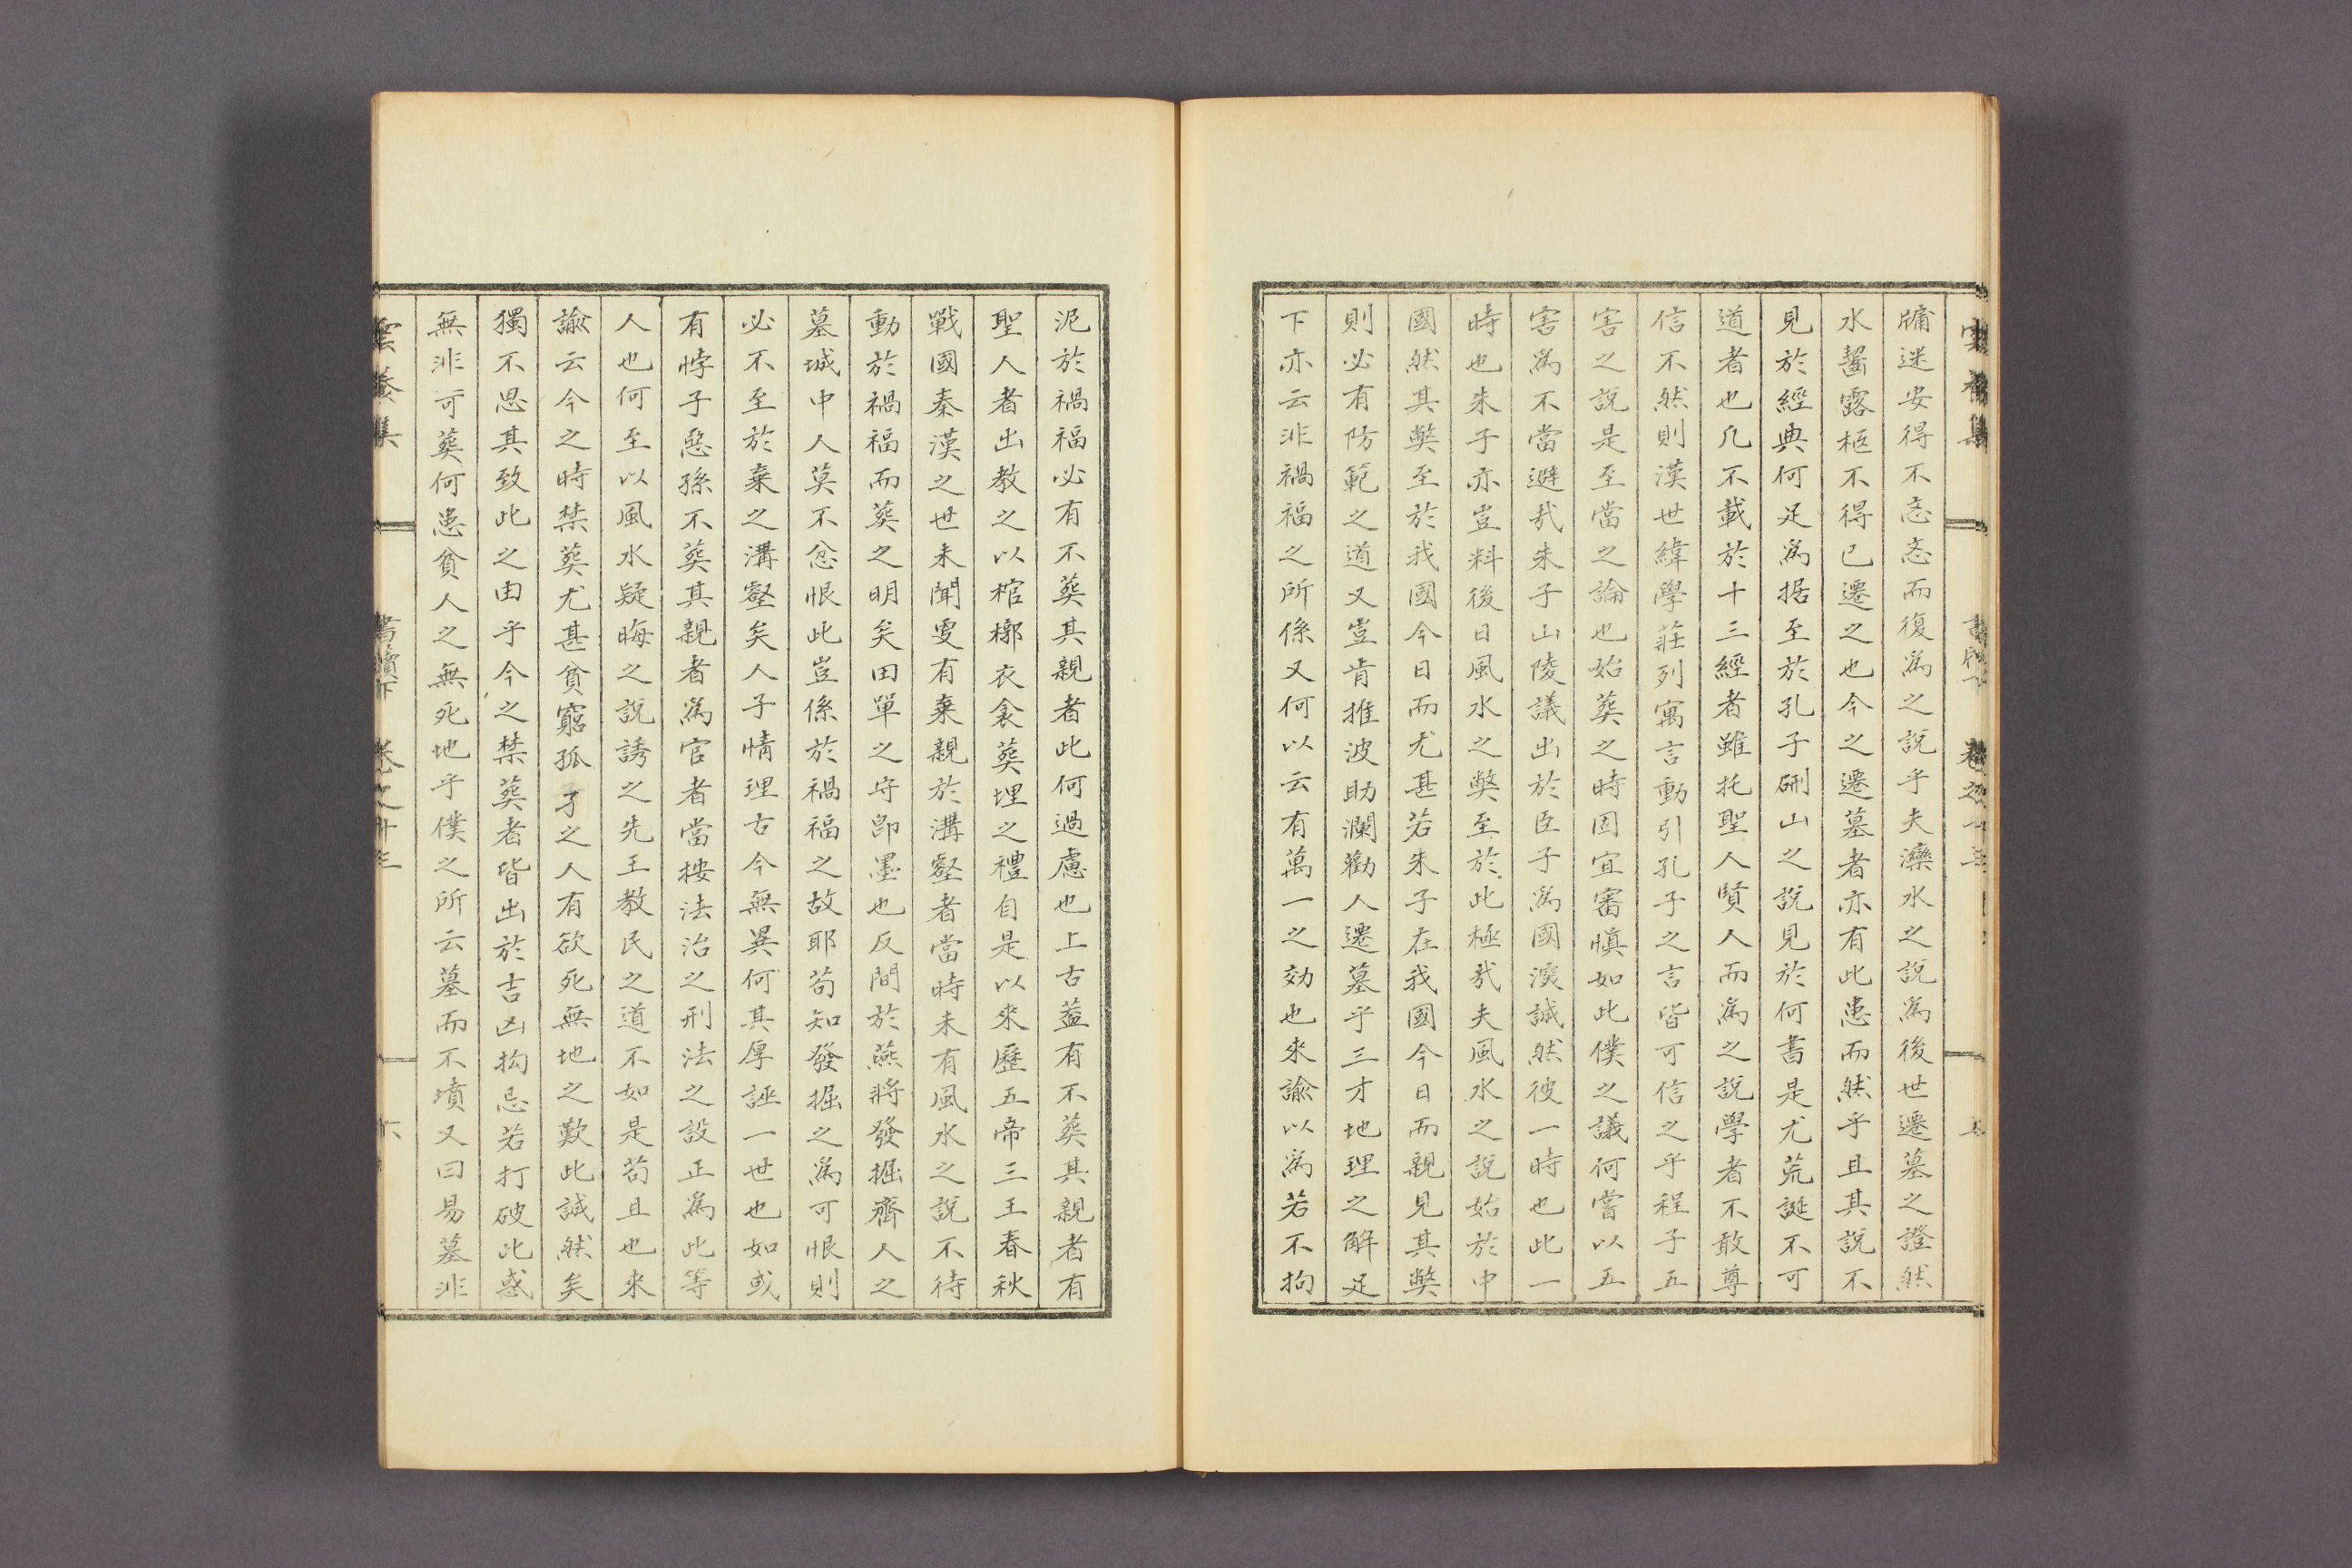 牗迷安得不忞忞而復爲之說乎夫灤水之說爲後世遷墓之證然
水齧露柩不得已遷之也今之遷墓者亦有此患而然乎且其說不
見於經典何足爲据至於孔子硎山之說見於何書是尤荒誕不可
道者也凡不載於十三經者雖托聖人贒人而爲之說學者不敢尊
信不然則漢世緯學莊列寓言動引孔子之言皆可信之乎程子五
害之說是至當之論也始葬之時固宜審愼如此僕之議何嘗以五
害爲不當避㢤朱子山陵議出於臣子爲國深誠然彼一時也此一
時也朱子亦豈料後日風水之獘至於此極㢤夫風水之說始於中
國然其獘至於我國今日而尤甚若朱子在我國今日而親見其獘
則必有防範之道又豈肯推波助瀾勸人遷墓乎三才地理之解足
下亦云非禍福之所係又何以云有萬一之効也來諭以爲若不拘
泥於禍福必有不葬其親者此何過慮也上古蓋有不葬其親者有
聖人者出教之以棺槨衣衾葬埋之禮自是以來歷五帝三王春秋
戰國秦漢之世未聞更有棄親於溝壑者當時未有風水之說不待
動於禍福而葬之明矣田單之守卽墨也反間於燕將發掘齊人之
墓城中人莫不忿恨此豈係於禍福之故耶苟知發掘之爲可恨則
必不至於棄之溝壑矣人子情理古今無異何其厚誣一世也如或
有悖子惡孫不葬其親者爲官者當按法治之刑法之設正爲此等
人也何至以風水疑晦之說誘之先王教民之道不如是苟且也來
諭云今之時禁葬尤甚貧窮孤子之人有欲死無地之歎此誠然矣
獨不思其致此之由乎今之禁葬者皆出於吉凶拘忌若打破此惑
無非可葬何患貧人之無死地乎僕之所云墓而不墳又曰易墓非
雲養集 書牘下 卷之十三 六